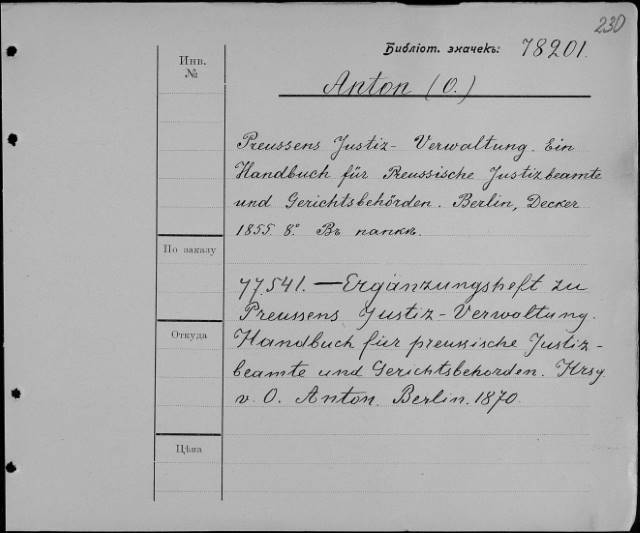 230
Библіот. значекъ: 78201.
Инв.
№
Anton (O.)
Preussens Justiz- Verwaltung. Ein
Handbuch für Preussische Justizbeamte
und Gerichtsbehörden. Berlin, Decker
1855. 8.° Въ папкѣ.
По заказу
77.541. — Ergänzungsheft zu
Preussens Justiz-Verwaltung.
Откуда
Handbuch für preussische Justiz-
beamte und Gerichtsbehorden. Hrsg
v. O. Anton. Berlin. 1870.
Цѣна